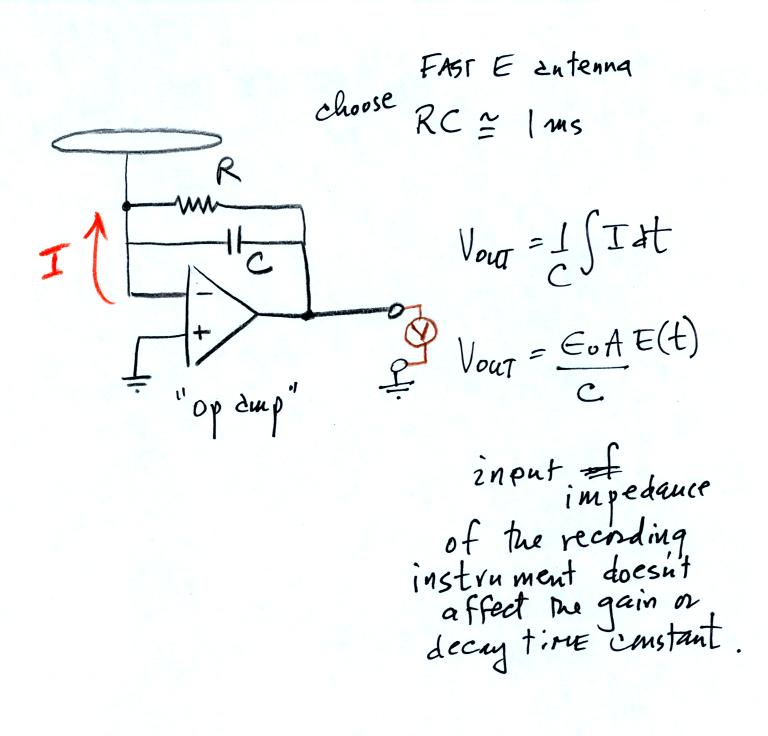 FAST E antenna
choose RC ≅ 1 ms
R
C
I
−
+
V
"op amp"
V_OUT = 1/C ∫ I dt
V_OUT = ε₀A E(t) / C
input
impedance
of the recording
instrument doesn't
affect the gain or
decay time constant.